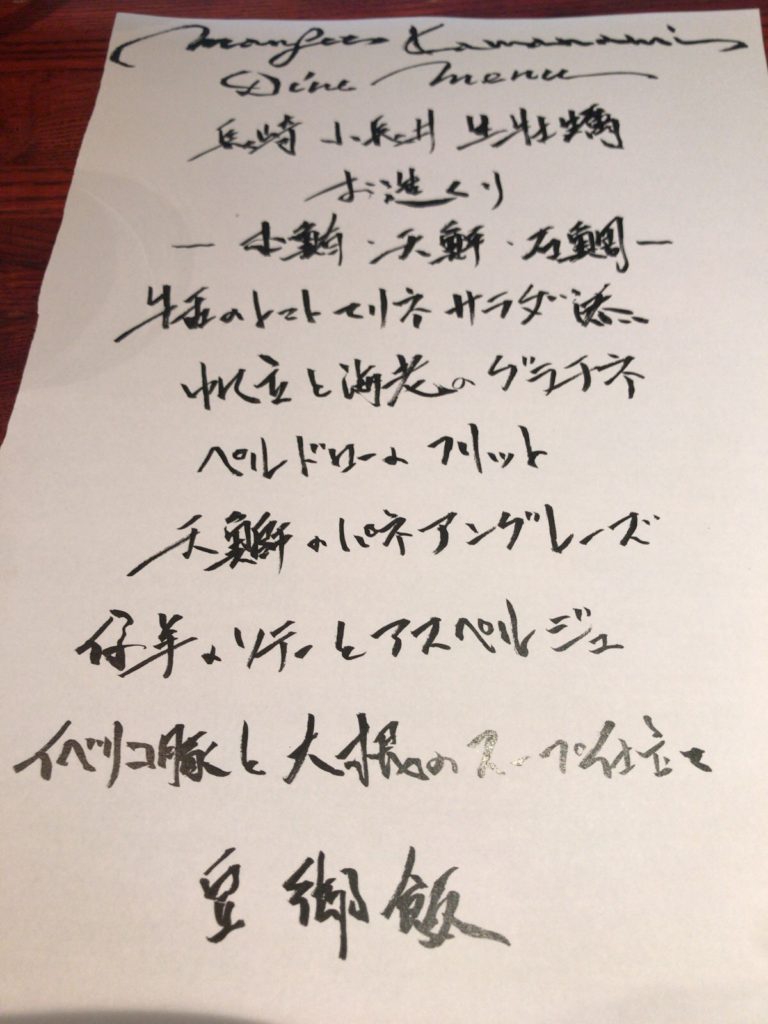 Dine menu
長崎 小長井 生牡蠣
お造くり
― 本鮪・天鮃・石鯛 ―
牛舌のトマトマリネ サラダ添え
帆立と海老のグラチネ
ペルドローのフリット
天鮃のパネアングレーズ
仔羊のソテーとアスペルジュ
イベリコ豚と大根のスープ仕立て
豆御飯